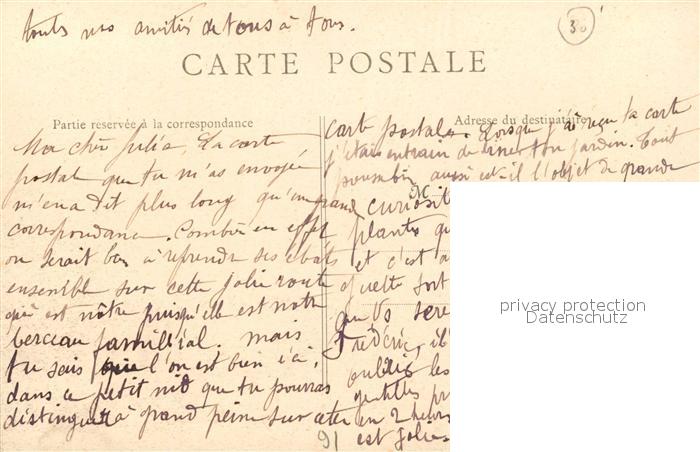 touts nos amitiés de tous à tous.
30
CARTE POSTALE
Partie reservée à la correspondance
Adresse du destinataire
Ma chèr Julia, La carte
postal que tu m'as envoyé
m'en a dit plus long qu'un grand
correspondance. Combien en effet
on serait bas à reprendre ses ebats
ensemble sur cette jolie route
qui est nôtre puisqu'elle est notre
berceau famillial. mais
tu sais que l'on est bien ici,
dans ce petit nid que tu pourras
distinguer à grand peine sur cette
carte postale. Lorsque j'ai reçu ta carte
j'étais entrain de
ton jardin. Tout
aussi est-il l'objet de grande
M
curiosit
plants qu
et c'est a
quelle sort
on Vs sere
Frédéric, il
oublie les
gentilles pr
en 2 heures
est jolie
91
privacy protection
Datenschutz